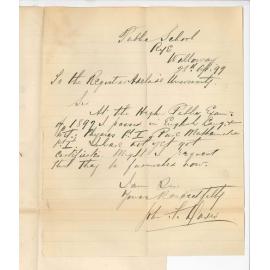 Public School
Rye
Walloway
28th Sept 99
To the Registrar Adelaide University
Sir
At the High Public Exam.
of 1897 I passed in English
Physics Pt I Pure Mathematics
Pt I I have not yet got
certificate. Might I request
that they be forwarded now.
I am Sir
Yours Respectfully
John F.